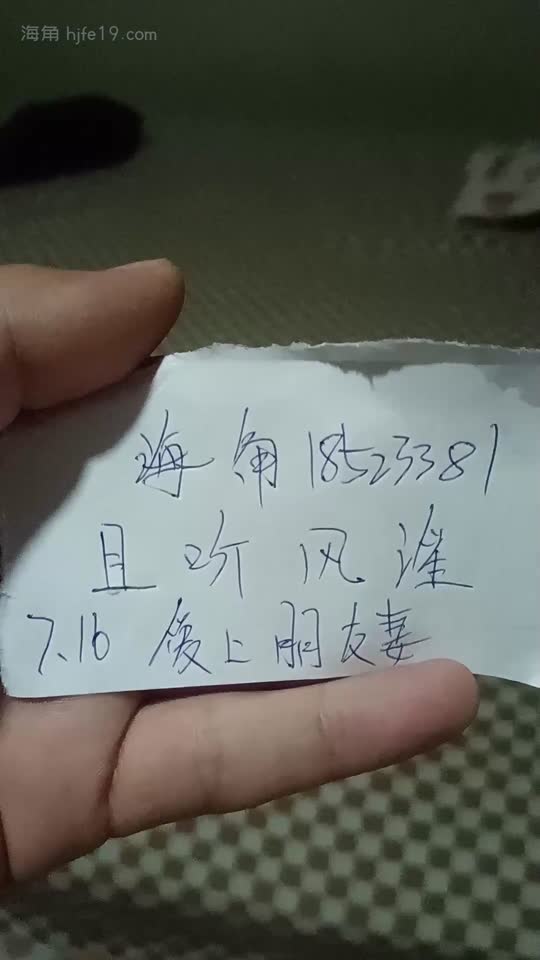 海角 hjfe19.com
海角 18523381
且听风谁
7.16 傻上朋友妻